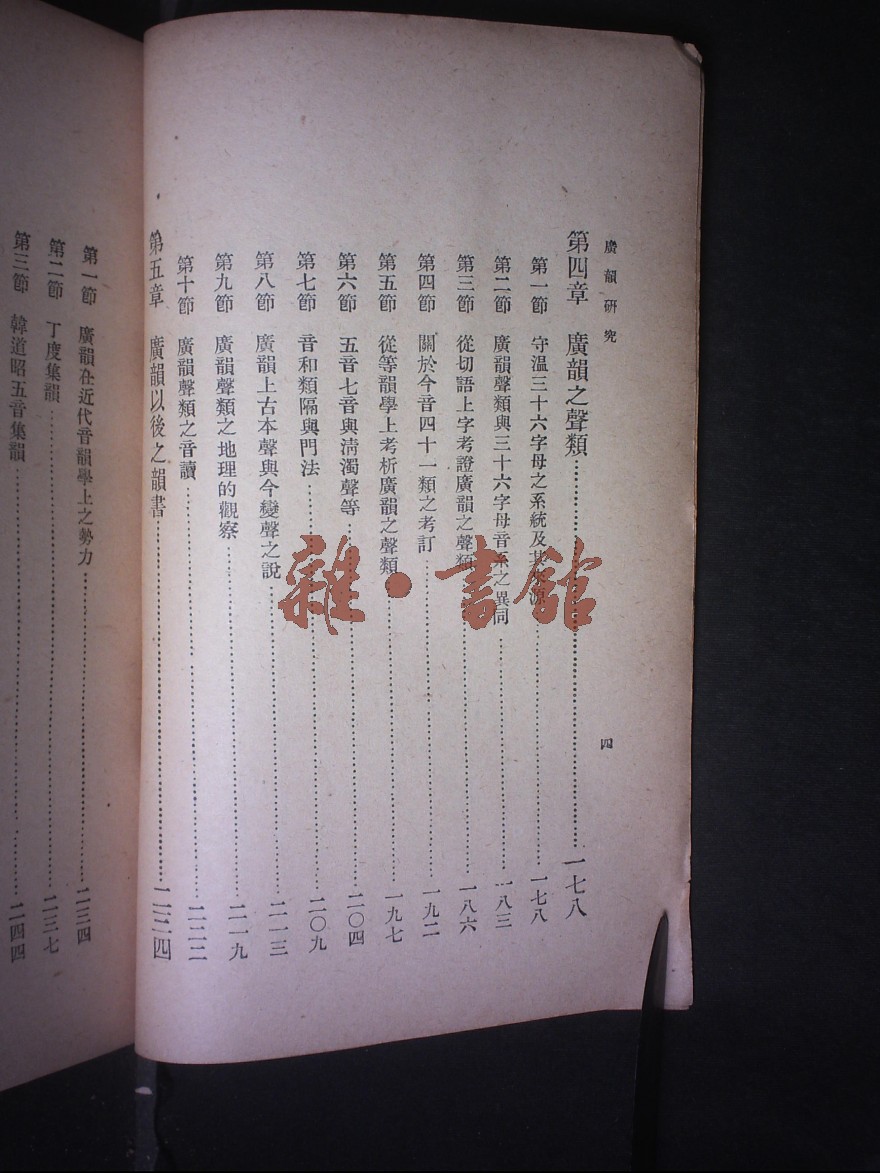 廣韻研究
四
第四章 廣韻之聲類……一七八
第一節 守溫三十六字母之系統及其來源……一七八
第二節 廣韻聲類與三十六字母音系之異同……一八三
第三節 從切語上字考證廣韻之聲類……一八六
第四節 關於今音四十一類之考訂……一九二
第五節 從等韻學上考析廣韻之聲類……一九七
第六節 五音七音與淸濁聲等……二〇四
第七節 音和類隔與門法……二〇九
第八節 廣韻上古本聲與今變聲之說……二一三
第九節 廣韻聲類之地理的觀察……二一九
第十節 廣韻聲類之音讀……二二二
第五章 廣韻以後之韻書……二三四
第一節 廣韻在近代音韻學上之勢力……二三四
第二節 丁度集韻……二三七
第三節 韓道昭五音集韻……二四四
雜·書館